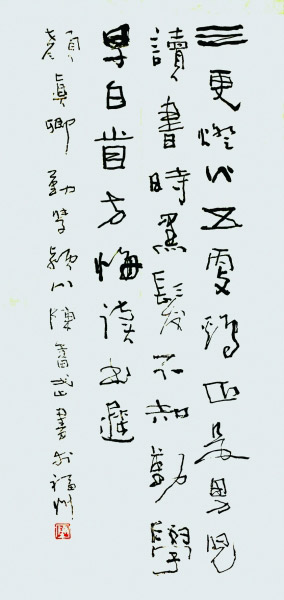 三更燈火五更鷄正是男兒
讀書時黑髮不知勤學
早白首方悔讀書遲
顏真卿勤學穎川陳奮武書於福州